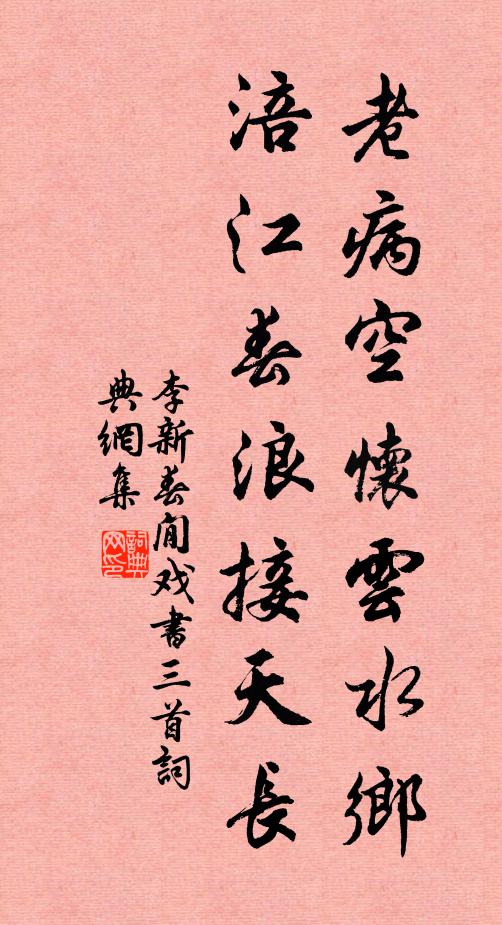 老病空懷雲水鄉
涪江春浪接天長
李新春閒戏書三首詞
典網集
詞典
网印